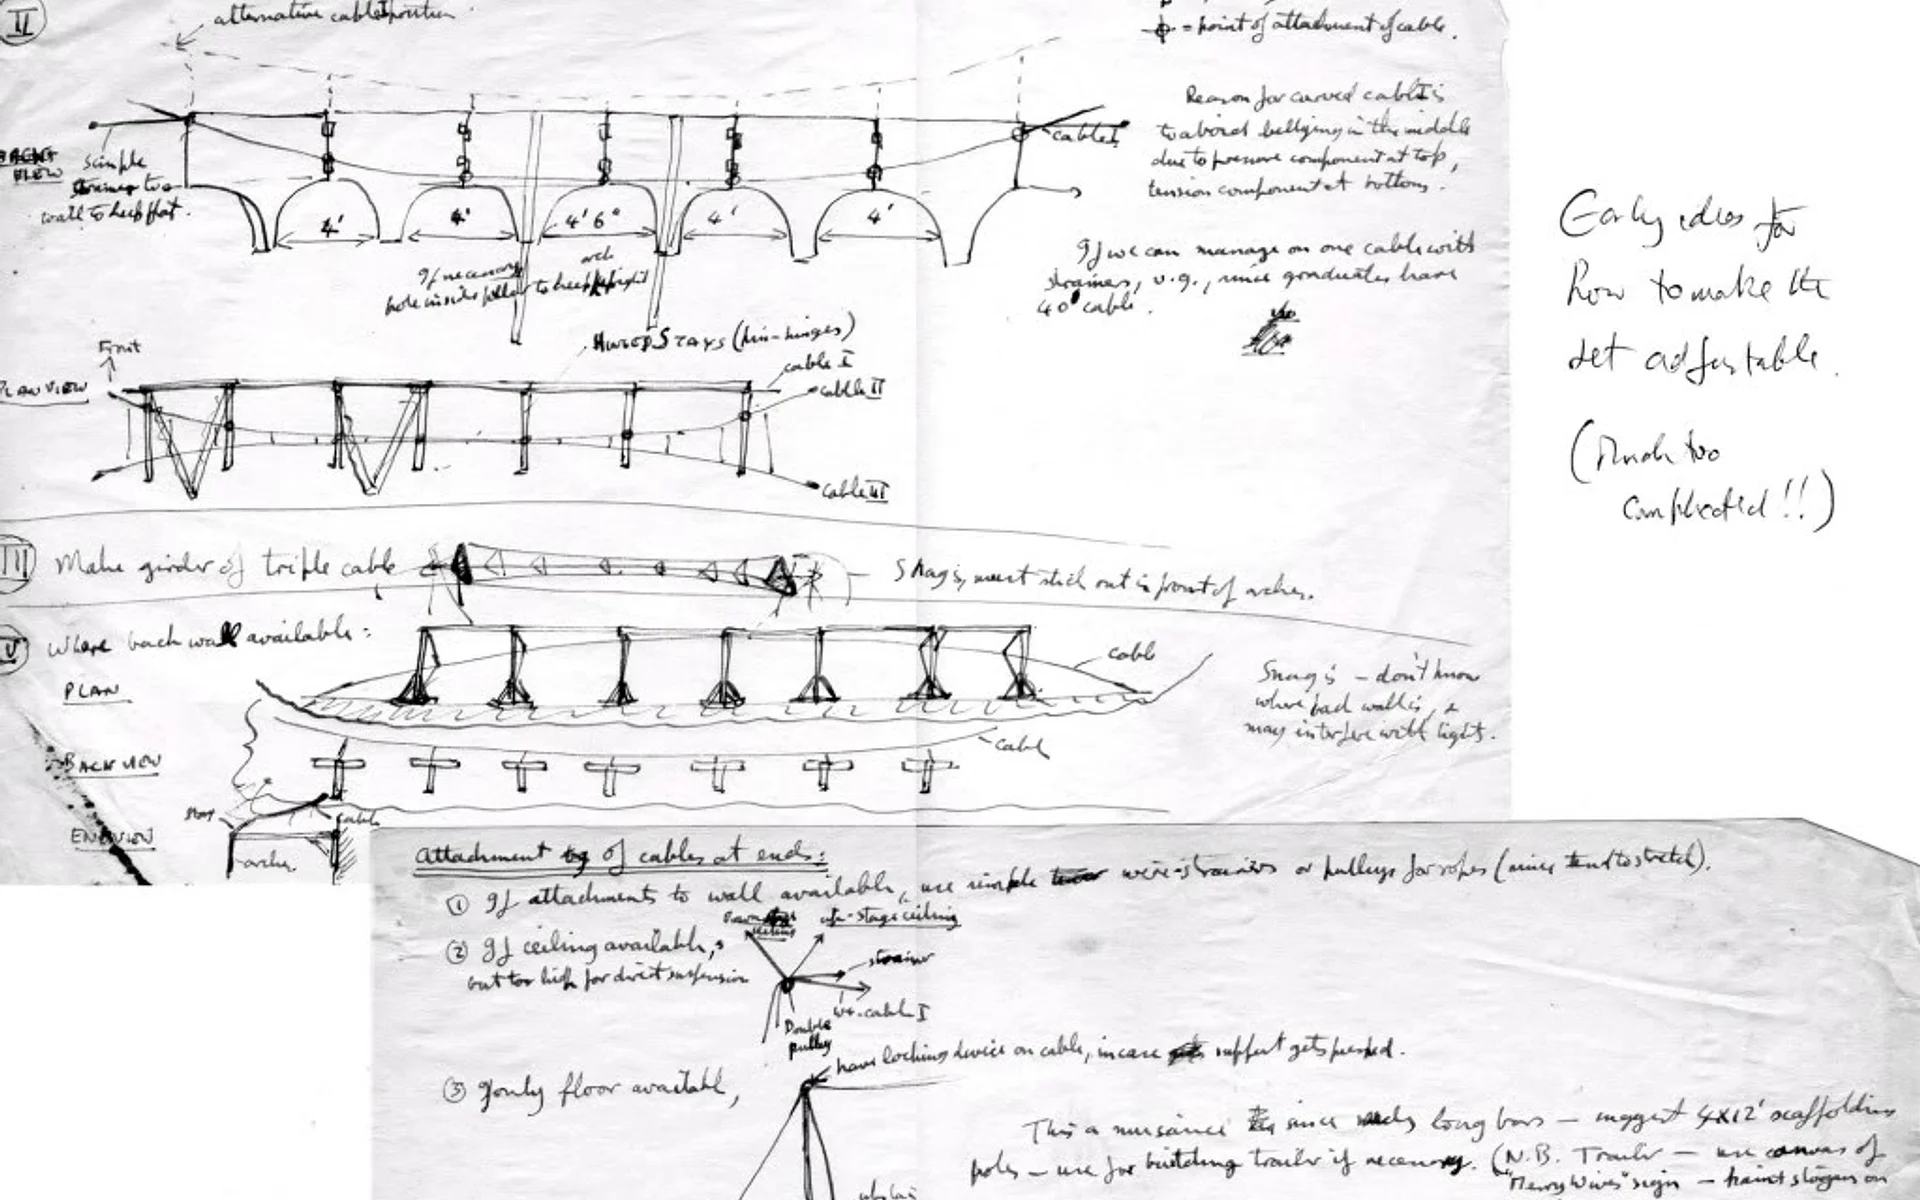 II
alternative cable position
= point of attachment of cable.
Reason for curved cable is
to avoid bellying in the middle
due to pressure component at top,
tension component at bottom.
cable I
VIEW
simple
strainer to
wall to keep flat.
4'
4'
4' 6"
4'
4'
arch
If necessary
pole inside pillar to keep upright
If we can manage on one cable with
strainers, v.g., since graduates have
40' cable.
Early ideas for
how to make the
set adjustable.
(Much too
complicated!!)
Front
PLAN VIEW
HINGED STAYS (pin-hinges)
cable I
cable II
cable III
III Make girder of triple cable
Snag is, must stick out in front of arches.
Where back wall available:
PLAN
cable
Snag is – don't know
where back wall is, &
may interfere with lights.
BACK VIEW
cable
stay
cable
END VIEW
arches
Attachment of cables at ends:
① If attachments to wall available, use simple wire-strainers or pulleys for ropes (since tend to stretch).
② If ceiling available,
but too high for direct suspension
up-stage ceiling
strainer
cable I
Double
pulley
have locking device on cable, in case support gets pushed.
③ If only floor available,
This a nuisance since needs long bars – suggest 4x12' scaffolding
poles – use for building trailer if necessary. (N.B. Trailer – use canvas of
"Merry Wives" sign – paint slogans on